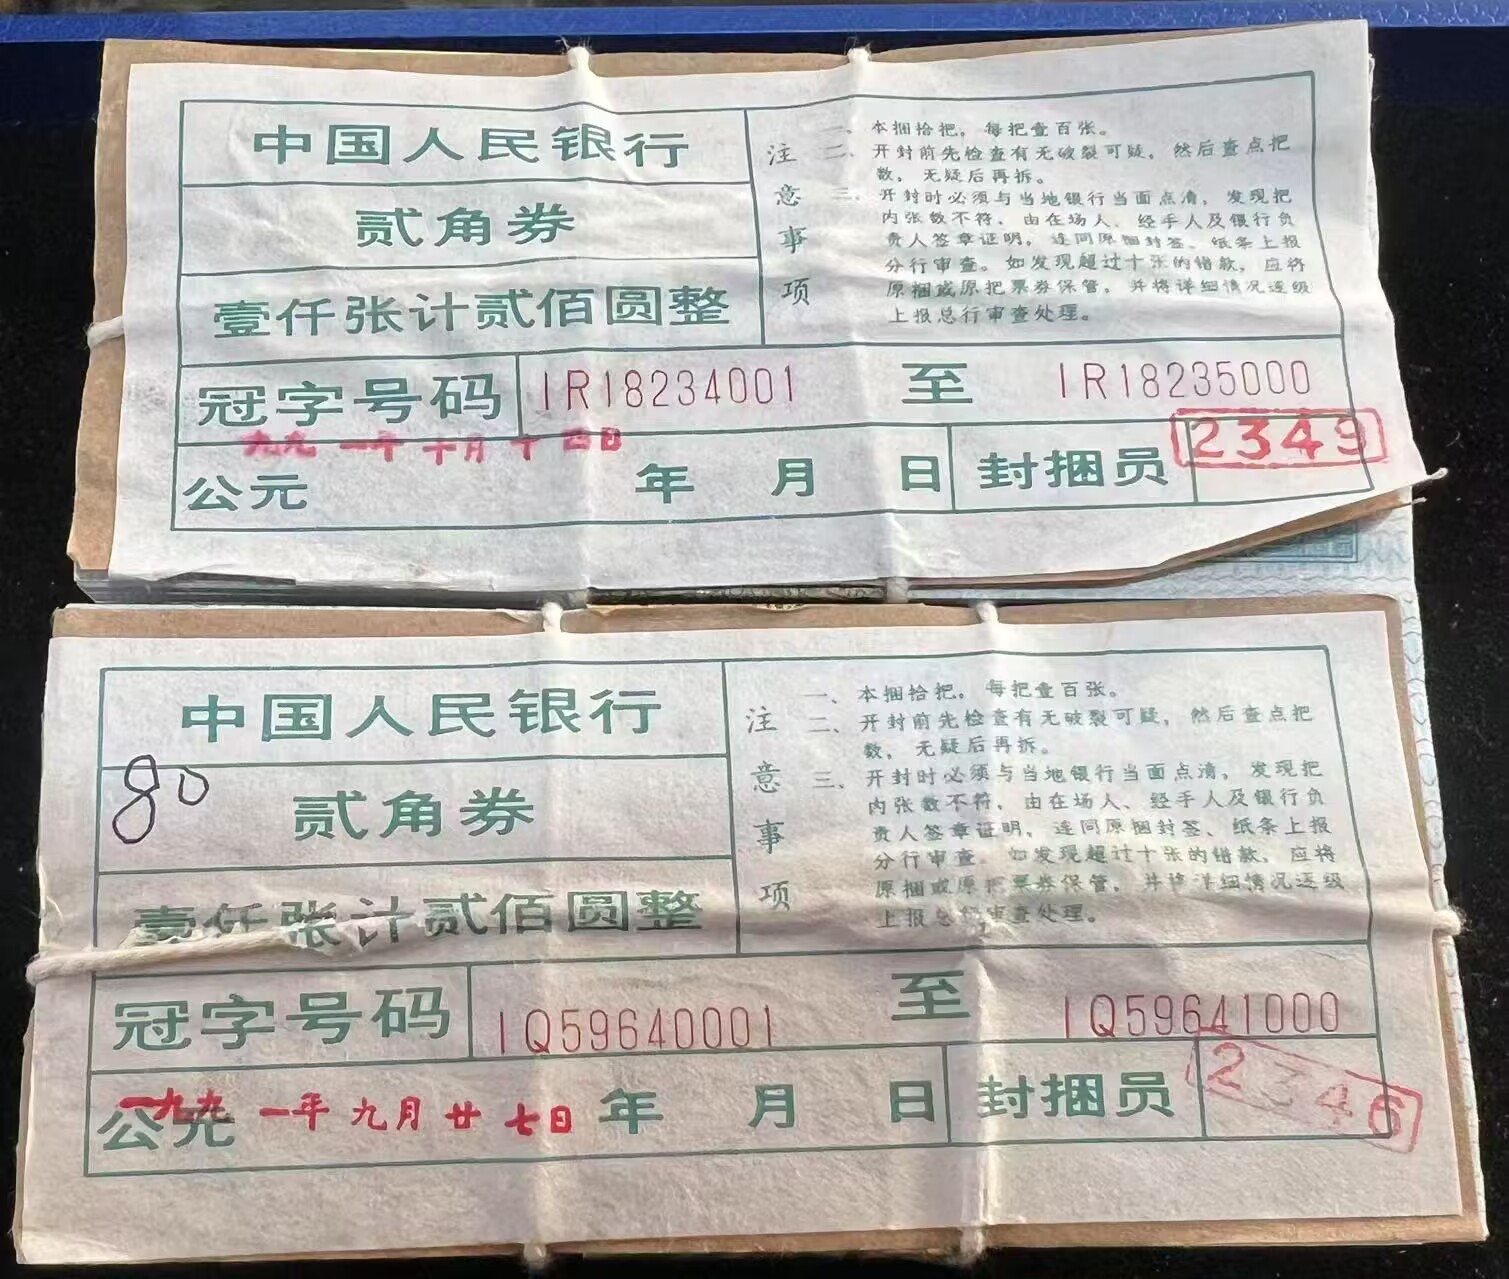 中国人民银行
贰角券
壹仟张计贰佰圆整
注意事项
一、本捆拾把，每把壹百张。
二、开封前先检查有无破裂可疑，然后查点把
数，无疑后再拆。
三、开封时必须与当地银行当面点清，发现把
内张数不符，由在场人、经手人及银行负
责人签章证明，连同原捆封签、纸条上报
分行审查。如发现超过十张的错款，应将
原捆或原把票券保管，并将详细情况逐级
上报总行审查处理。
冠字号码 IR18234001 至 IR18235000
九九一年十月十四日
公元 年 月 日 封捆员 2349
中国人民银行
80
贰角券
壹仟张计贰佰圆整
注意事项
一、本捆拾把，每把壹百张。
二、开封前先检查有无破裂可疑，然后查点把
数，无疑后再拆。
三、开封时必须与当地银行当面点清，发现把
内张数不符，由在场人、经手人及银行负
责人签章证明，连同原捆封签、纸条上报
分行审查。如发现超过十张的错款，应将
原捆或原把票券保管，并将详细情况逐级
上报总行审查处理。
冠字号码 IQ59640001 至 IQ59641000
一九九一年九月廿七日
公元 年 月 日 封捆员 2346